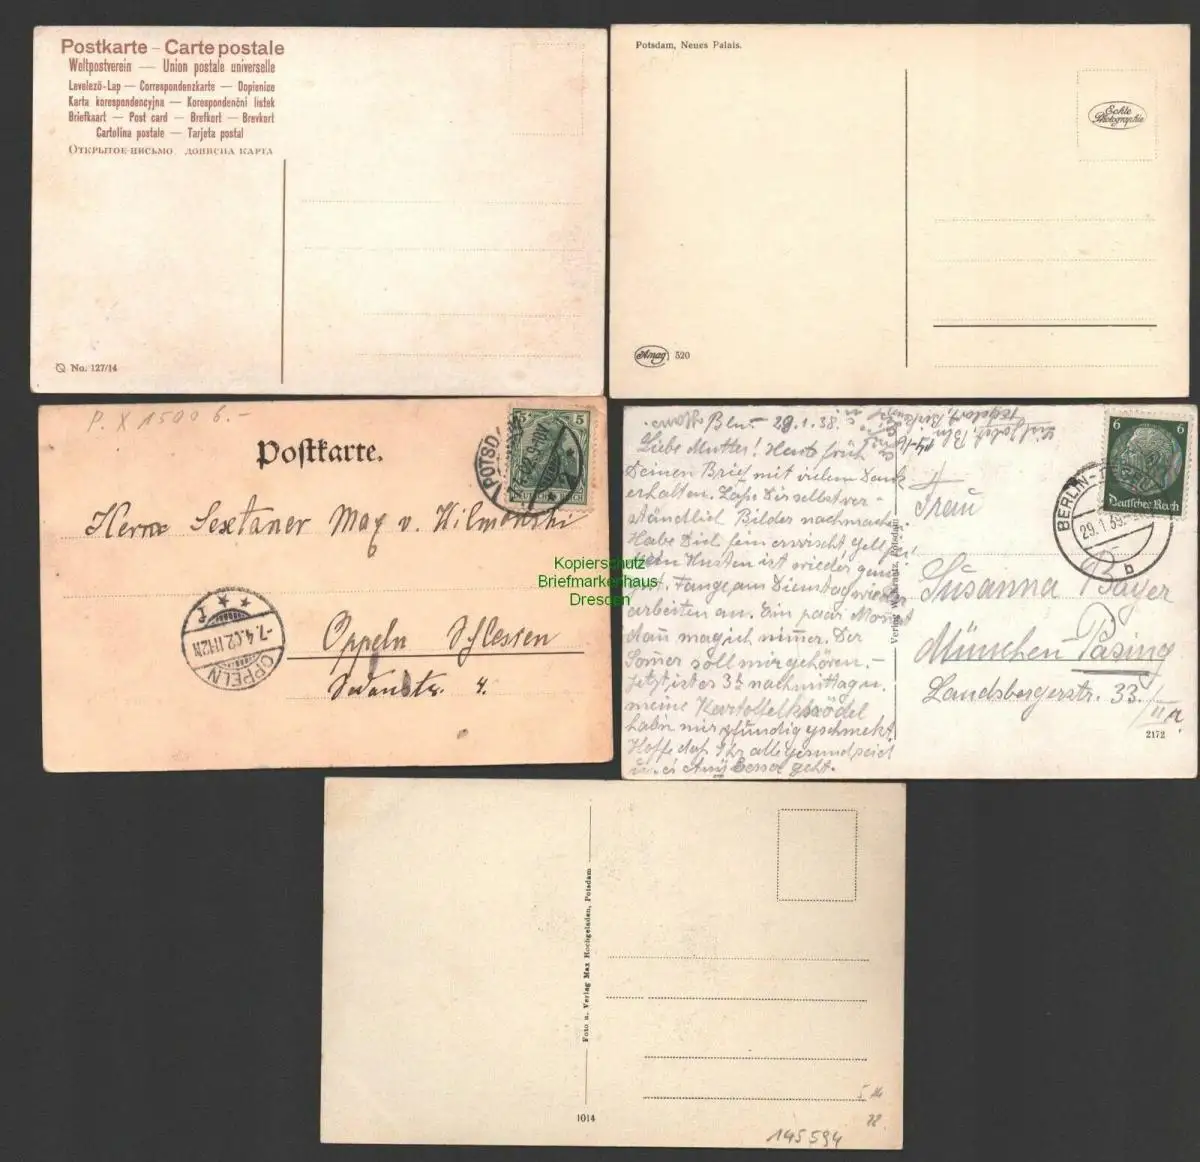 Postkarte – Carte postale
Weltpostverein — Union postale universelle
Levelező-Lap — Correspondenzkarte — Dopisnice
Karta korespondencyjna — Korespondenční lístek
Briefkaart — Post card — Brefkort — Brevkort
Cartolina postale — Tarjeta postal
ОТКРЫТОЕ ПИСЬМО ДОПИСНА КАРТА
No. 127/14
Potsdam, Neues Palais.
Echte
Photographie
Amag 520
P. X 1500 6.-
Postkarte.
5 5
DEUTSCHES REICH
POTSD
Herrn Sextaner Max v.
Oppeln Schlesien
4.
OPPELN
-7.4.02.11-12N
Bln. 29.1.38.
Liebe Mutter! Heute früh
Deinen Brief mit vielem Dank
erhalten. Lasse Dir selbstver-
ständlich Bilder nachmachen
Habe Dich fein erwischt gell
Husten ist wieder gut
Fange am Dienstag wieder
arbeiten an. Ein paar Monat
dann mag ich nimmer. Der
Sommer soll mir gehören. -
Jetzt ist es 3½ nachmittag u.
meine Kartoffelknödel
hab'n mir pfundig geschmekt
Hoffe daß Ihr alle gesund seid
u. es Amy besser geht.
Verlag W. Krantz, Potsdam
6 6
Deutsches Reich
BERLIN
29.1.39.
b
Frau
Susanna Bayer
München Pasing
Landsbergerstr. 33/II
2172
Kopierschutz
Briefmarkenhaus
Dresden
Foto u. Verlag Max Hochgeladen, Potsdam
1014
145594